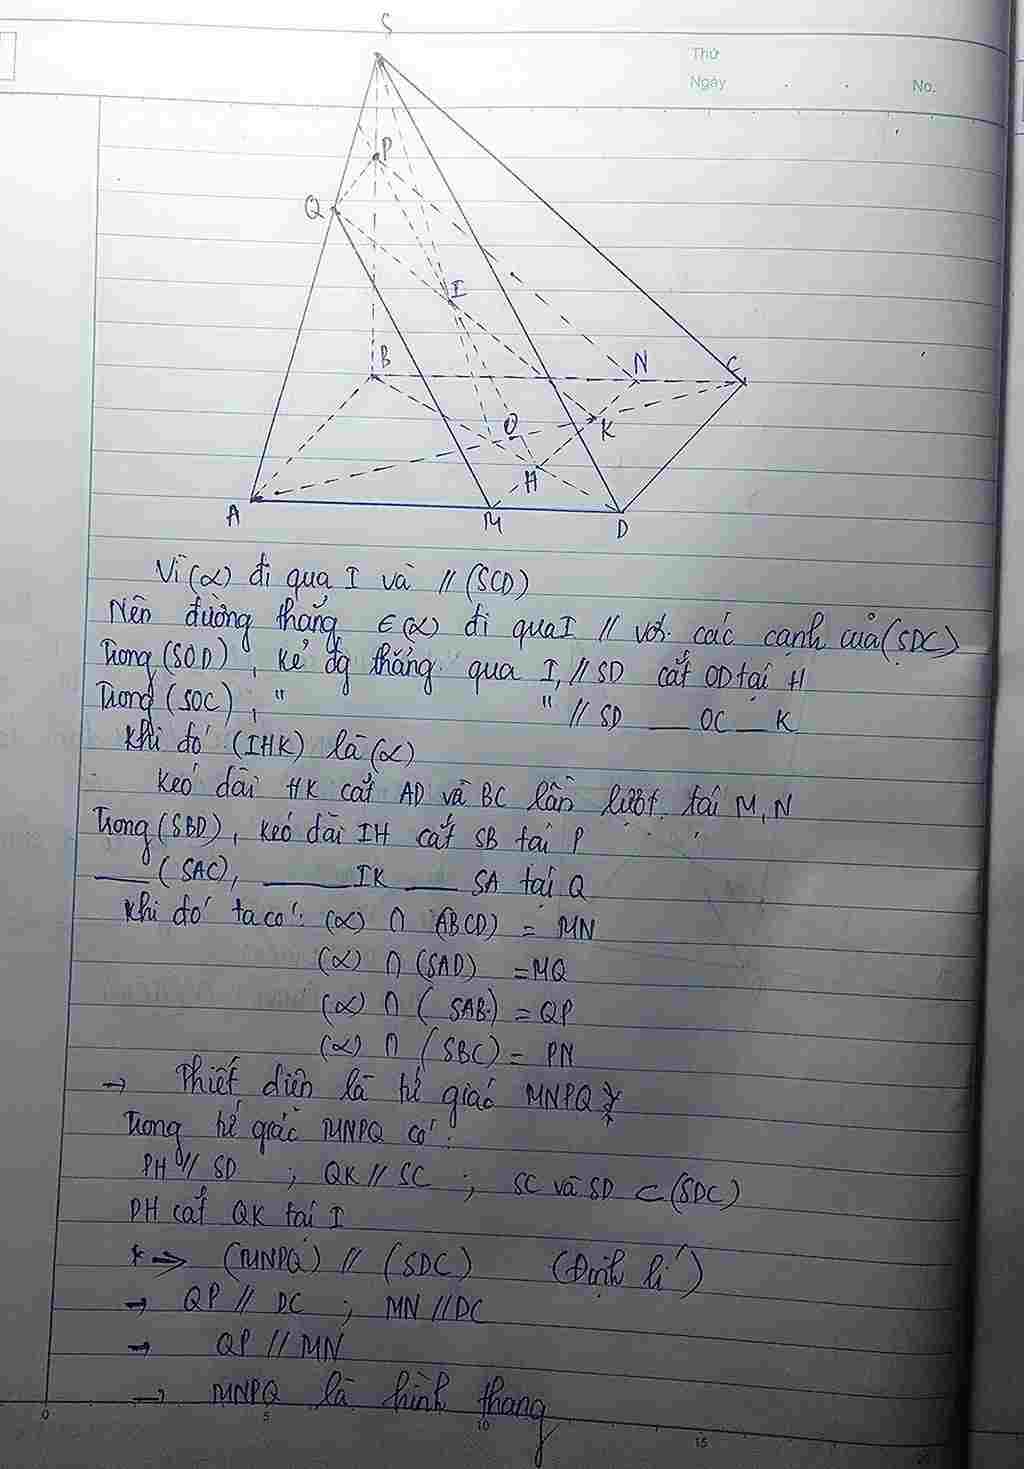 Thứ
Ngày . . No.
S
P
Q
I
B
N
C
O
K
H
A
M
D
Vì (α) đi qua I và // (SCD)
Nên đường thẳng ∈ (α) đi qua I // với các cạnh của (SDC)
Trong (SOD), kẻ đg thẳng qua I, // SD cắt OD tại H
Trong (SOC), " " // SD __ OC __ K
Khi đó (IHK) là (α)
Kéo dài HK cắt AD và BC lần lượt tại M, N
Trong (SBD), kéo dài IH cắt SB tại P
__ (SAC), __ IK __ SA tại Q
Khi đó ta có: (α) ∩ (ABCD) = MN
(α) ∩ (SAD) = MQ
(α) ∩ (SAB) = QP
(α) ∩ (SBC) = PN
→ Thiết diện là tứ giác MNPQ
Trong tứ giác MNPQ có:
PH // SD ; QK // SC ; SC và SD ⊂ (SDC)
PH cắt QK tại I
* => (MNPQ) // (SDC) (Định lí)
→ QP // DC ; MN // DC
→ QP // MN
→ MNPQ là hình thang
0 5 10 15 20